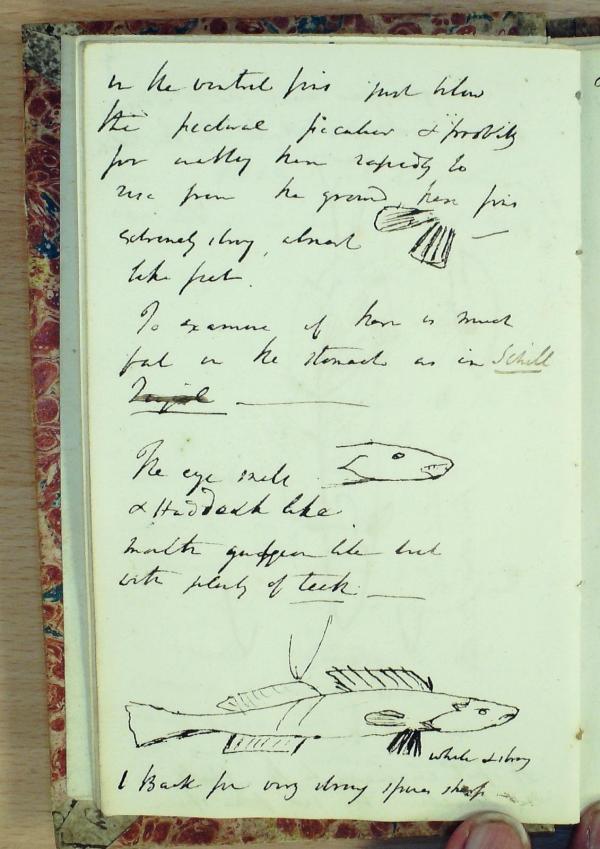 in the ventral fins just below
the pectoral peculiar & probably
for enabling them rapidly to
rise from the ground, these fins
extremely strong, almost
like feet.
To examine if there is much
fat in the stomach as in Schill
The eye small
& Haddock like
mouth gudgeon like but
with plenty of teeth.
whole & strong
1 Back fin very strong spines sharp